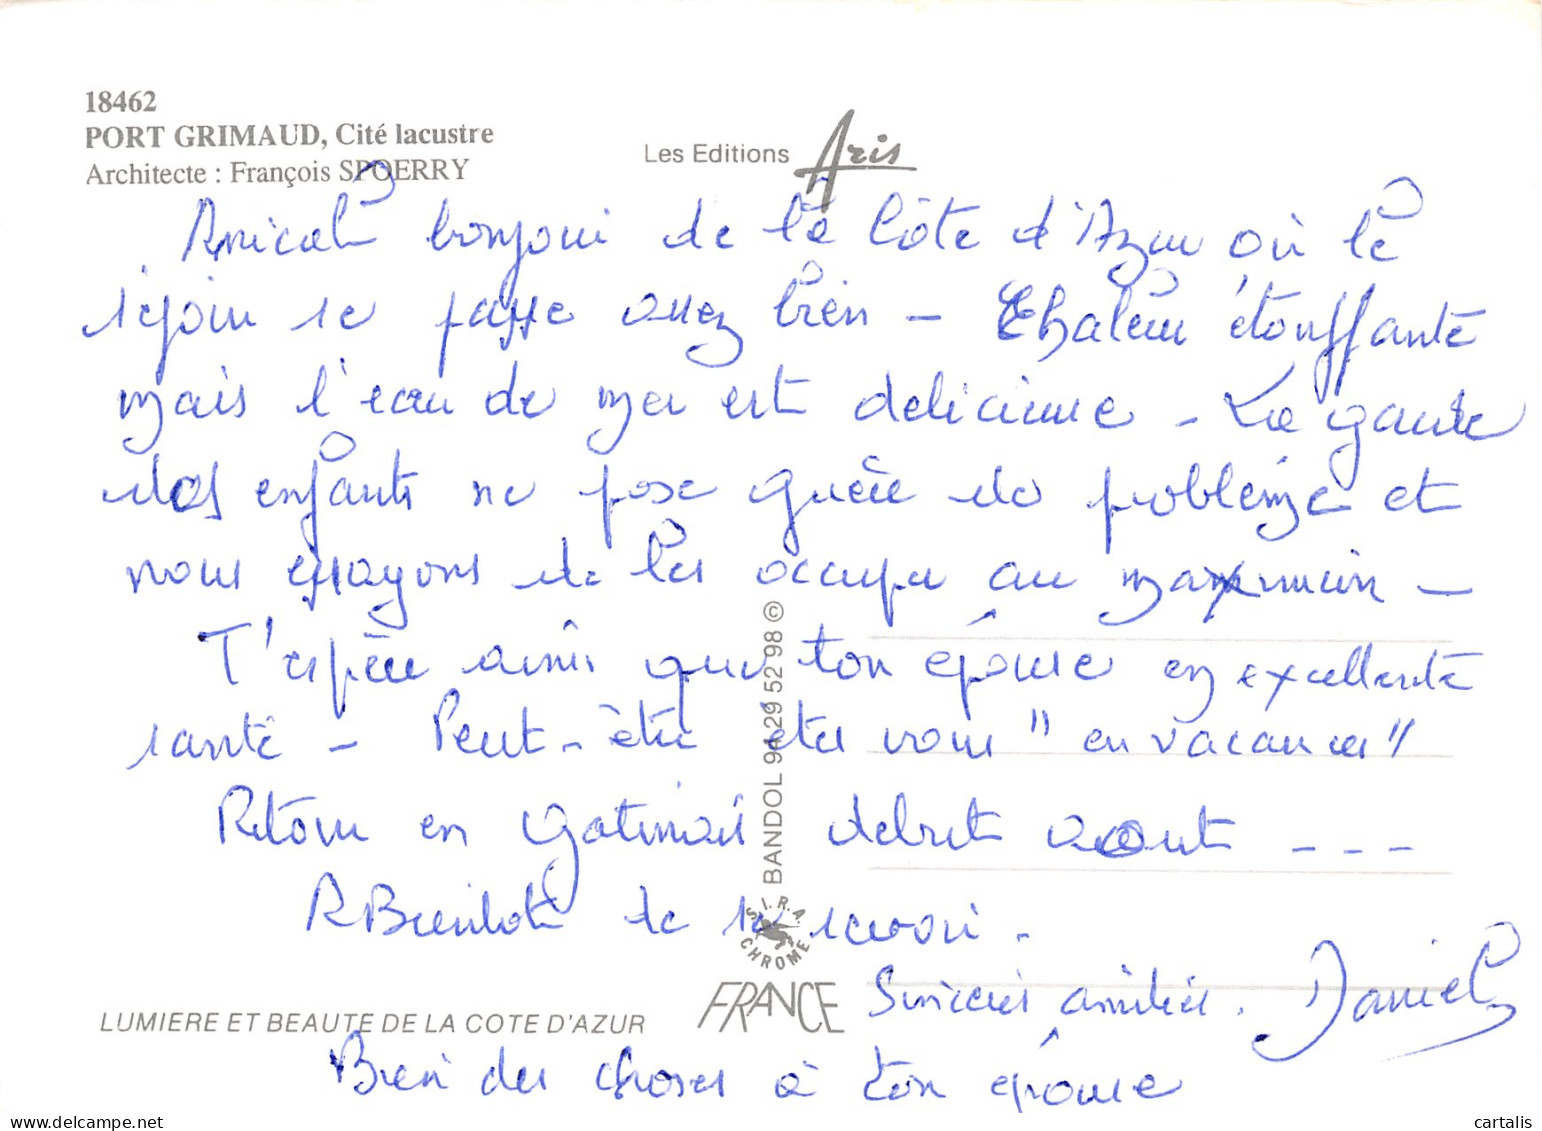 18462
PORT GRIMAUD, Cité lacustre
Architecte : François SPOERRY
Les Editions Aris
Amical bonjour de la Côte d'Azur où le
séjour se passe assez bien - Chaleur étouffante
mais l'eau de mer est délicieuse - La garde
des enfants ne pose guère de problème et
nous essayons de les occuper au maximum -
J'espère ainsi que ton épouse en excellente
santé - Peut-être êtes vous "en vacances"
Retour en Gatinais début août - - -
A Bientôt de se revoir -
Sincères amitiés. Daniel
Bien des choses à ton épouse
BANDOL 94 29 52 98 ©
S.I.R.A. CHROME
FRANCE
LUMIERE ET BEAUTE DE LA COTE D'AZUR
cartalis
www.delcampe.net